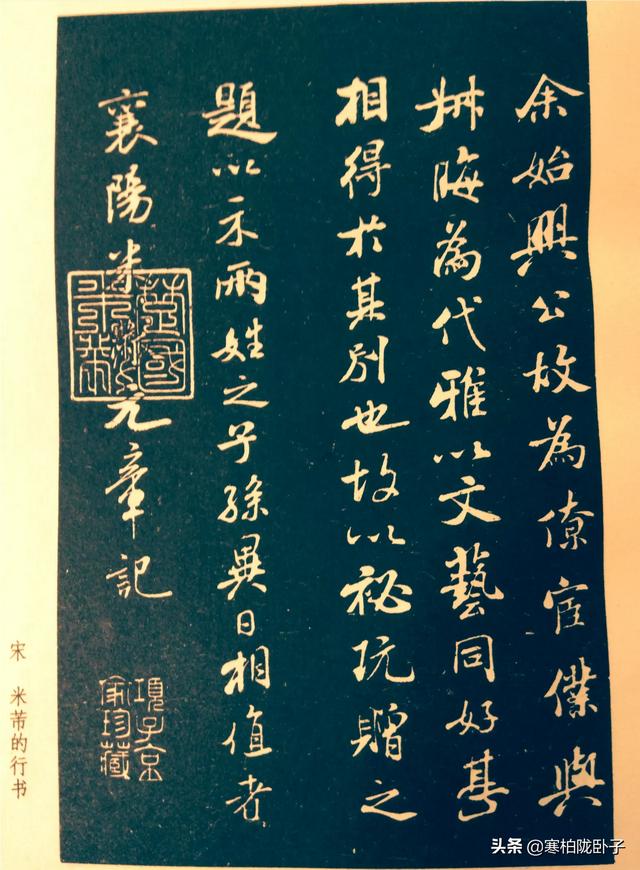 余始興公故為僚宦僕與
叔晦為代雅以文藝同好甚
相得於其別也故以祕玩贈之
題以示兩姓之子孫異日相值者
襄陽米黻元章記
楚國米芾
項子京家珍藏
宋 米芾的行书
头条 @寒柏陇卧子